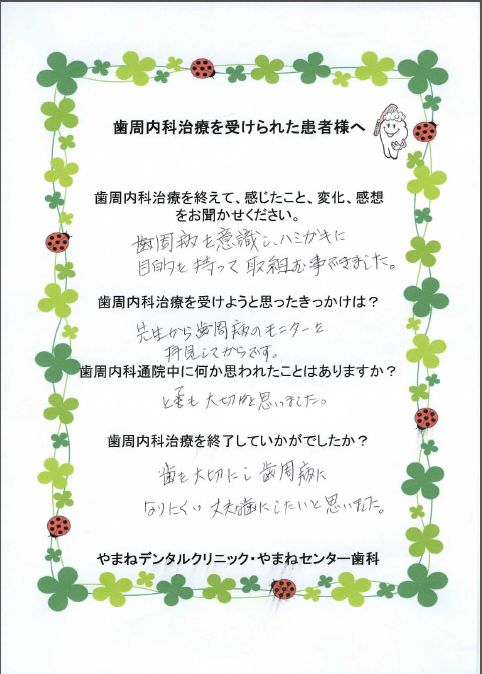 歯周内科治療を受けられた患者様へ
歯周内科治療を終えて、感じたこと、変化、感想
をお聞かせください。
歯周病を意識し、ハミガキに
目的を持って取組む事できました。
歯周内科治療を受けようと思ったきっかけは？
先生から歯周病のモニターを
拝見してからです。
歯周内科通院中に何か思われたことはありますか？
とても大切だと思いました。
歯周内科治療を終了していかがでしたか？
歯を大切にし歯周病に
なりにくい丈夫な歯にしたいと思いました。
やまねデンタルクリニック・やまねセンター歯科